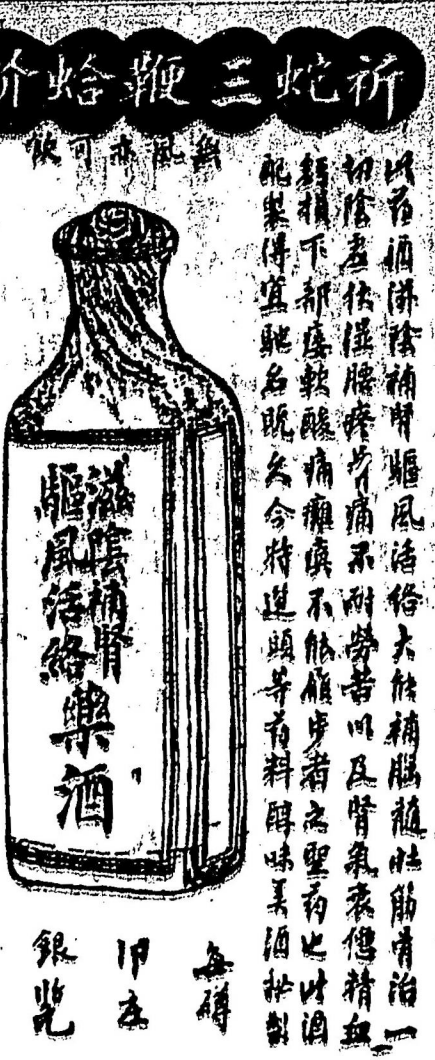 祈蛇三鞭蛤蚧
無風亦可飲
此葯酒滋陰補腎驅風活络大能補腦髓壯筋骨治一
切陰虚伏濕腰疼骨痛不耐勞苦以及腎氣衰憊精血
虧損下部痿軟酸痛癱瘓不能履步者之聖葯也此酒
配製得宜馳名既久今特选頭等葯料醇味美酒秘製
滋陰補腎
驅風活絡
藥酒
每樽
銀